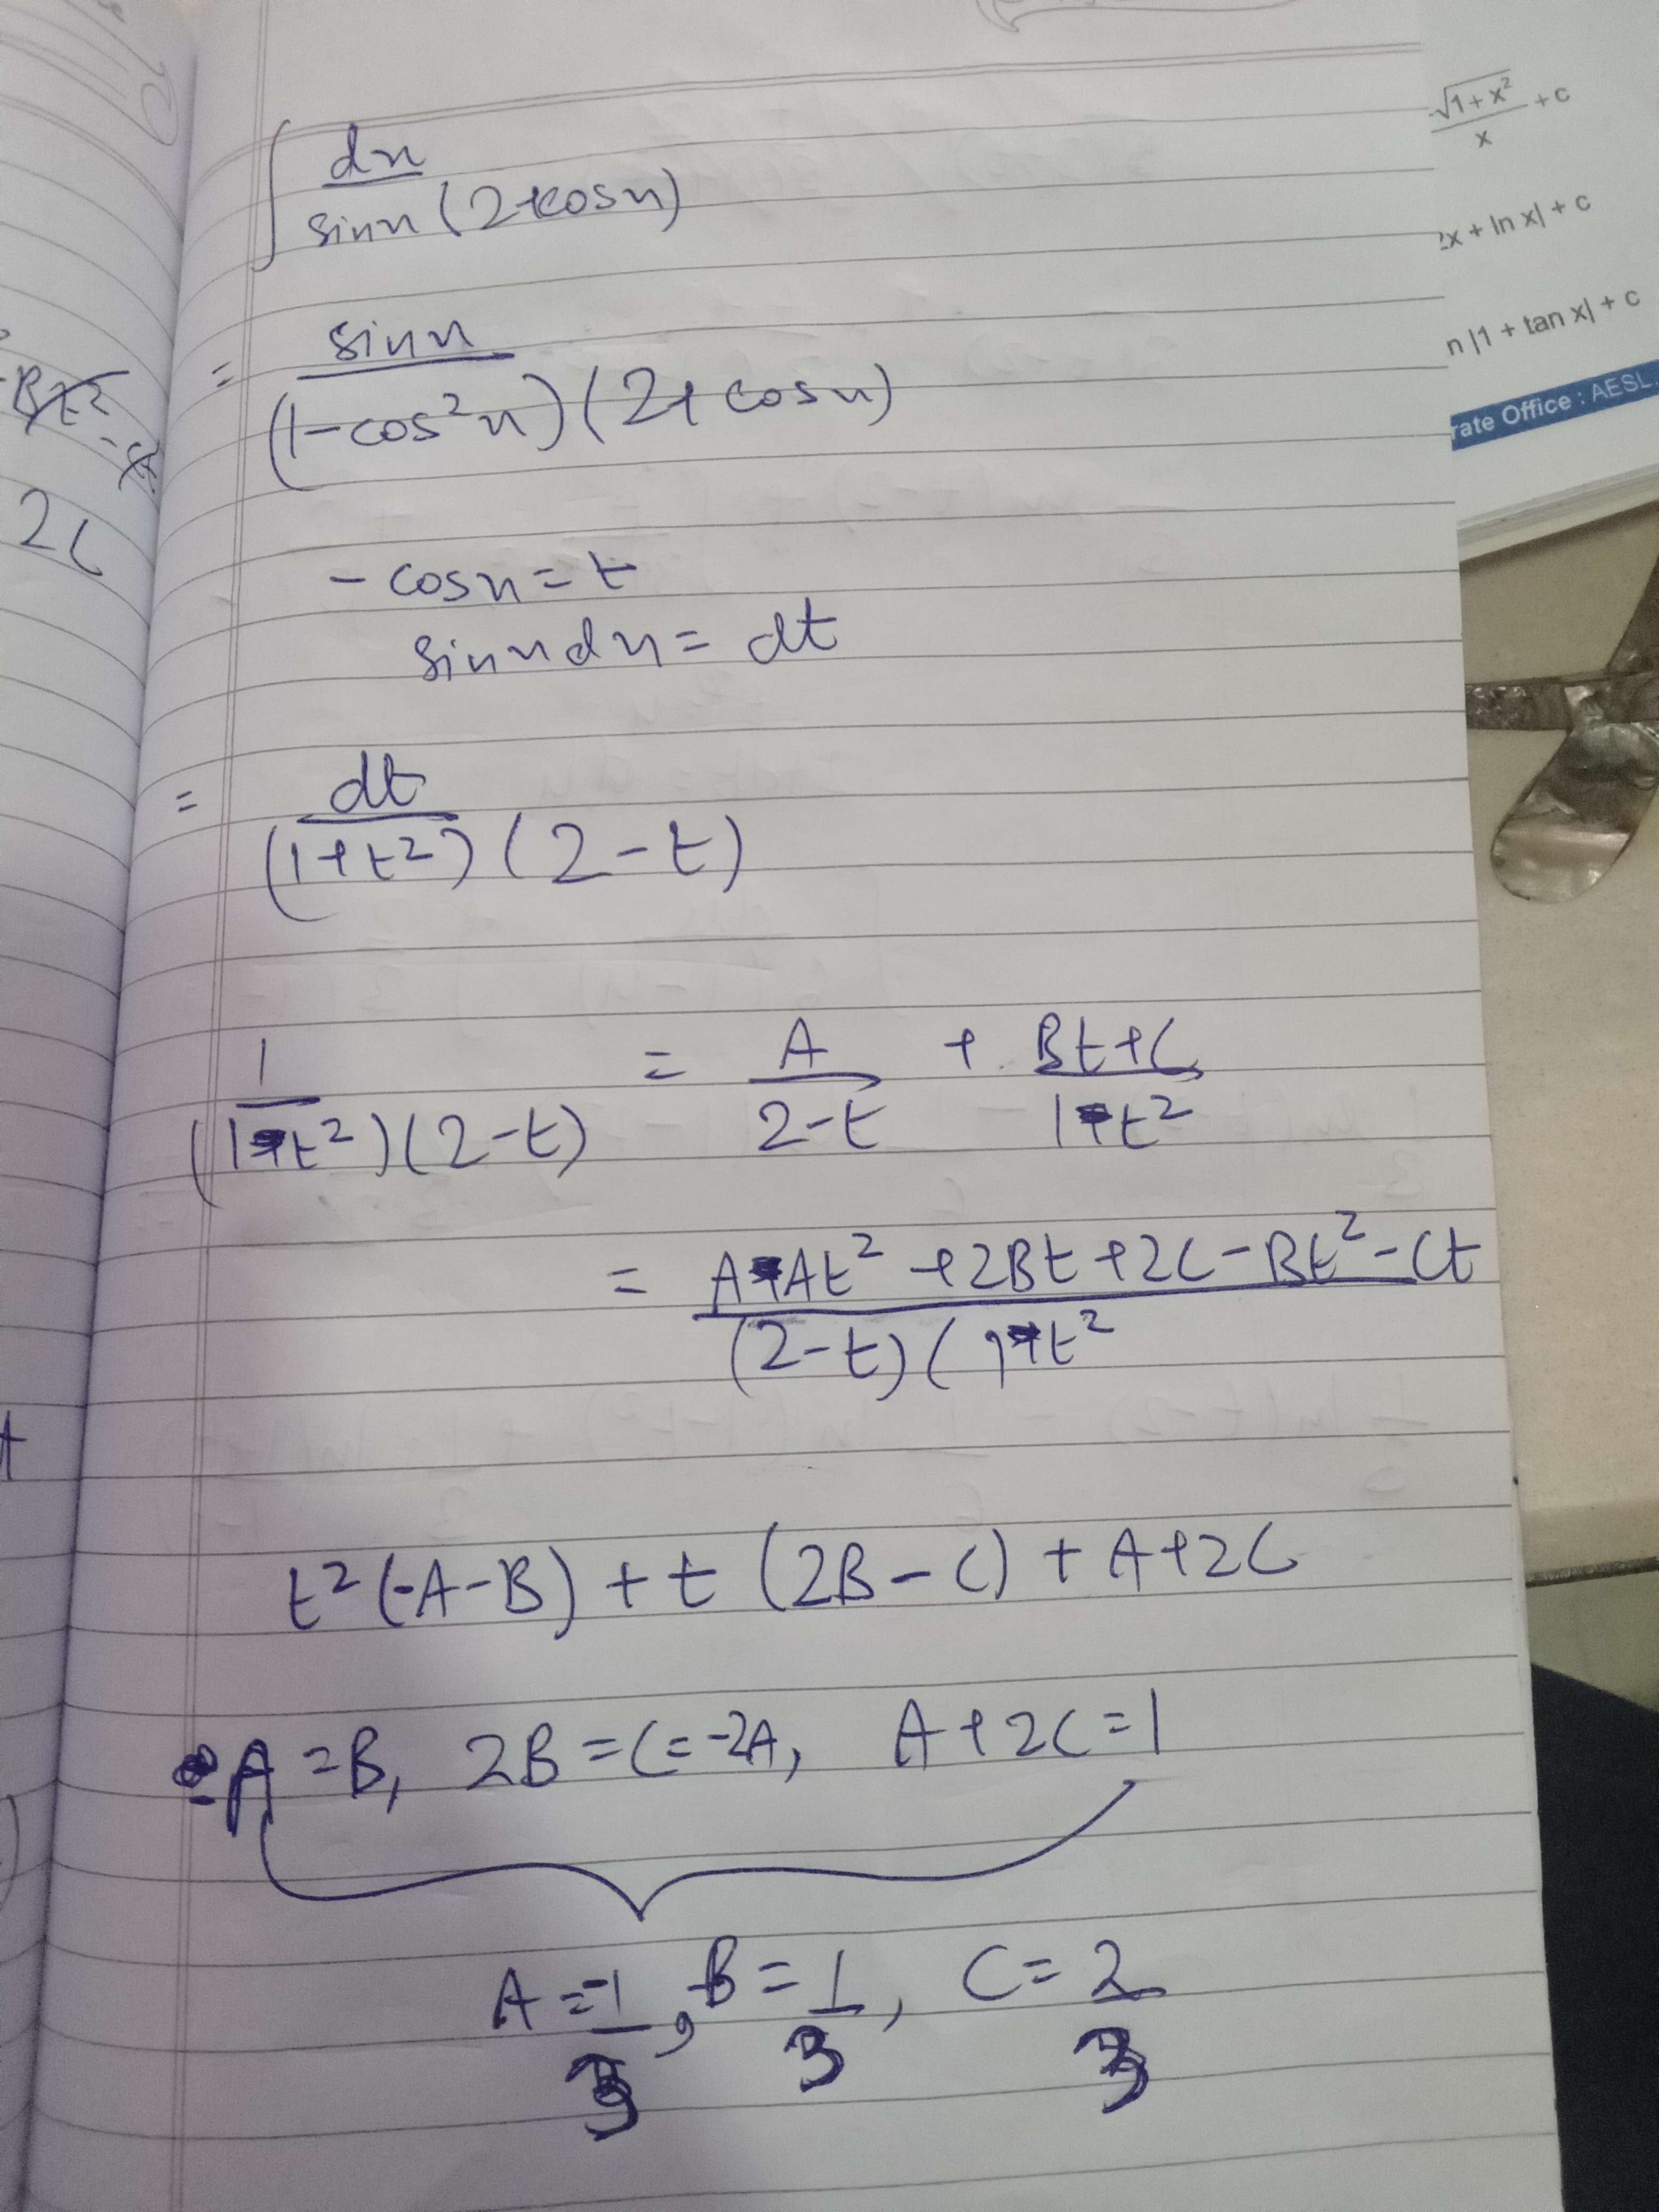 ∫ dx / sinx (2+cosx)
= sinx / (1-cos²x)(2+cosx)
-cosx = t
sinx dx = dt
= dt / (1+t²)(2-t)
1 / (1-t²)(2-t) = A / 2-t + Bt+C / 1-t²
= A-At²+2Bt+2C-Bt²-Ct / (2-t)(1-t²
t²(-A-B)+t(2B-C)+A+2C
-A=B, 2B=C=-2A, A+2C=1
A=-1/3, B=1/3, C=2/3
2C
√1+x² / x +c
x + ln x| + c
n |1 + tan x| + c
rate Office : AESL,